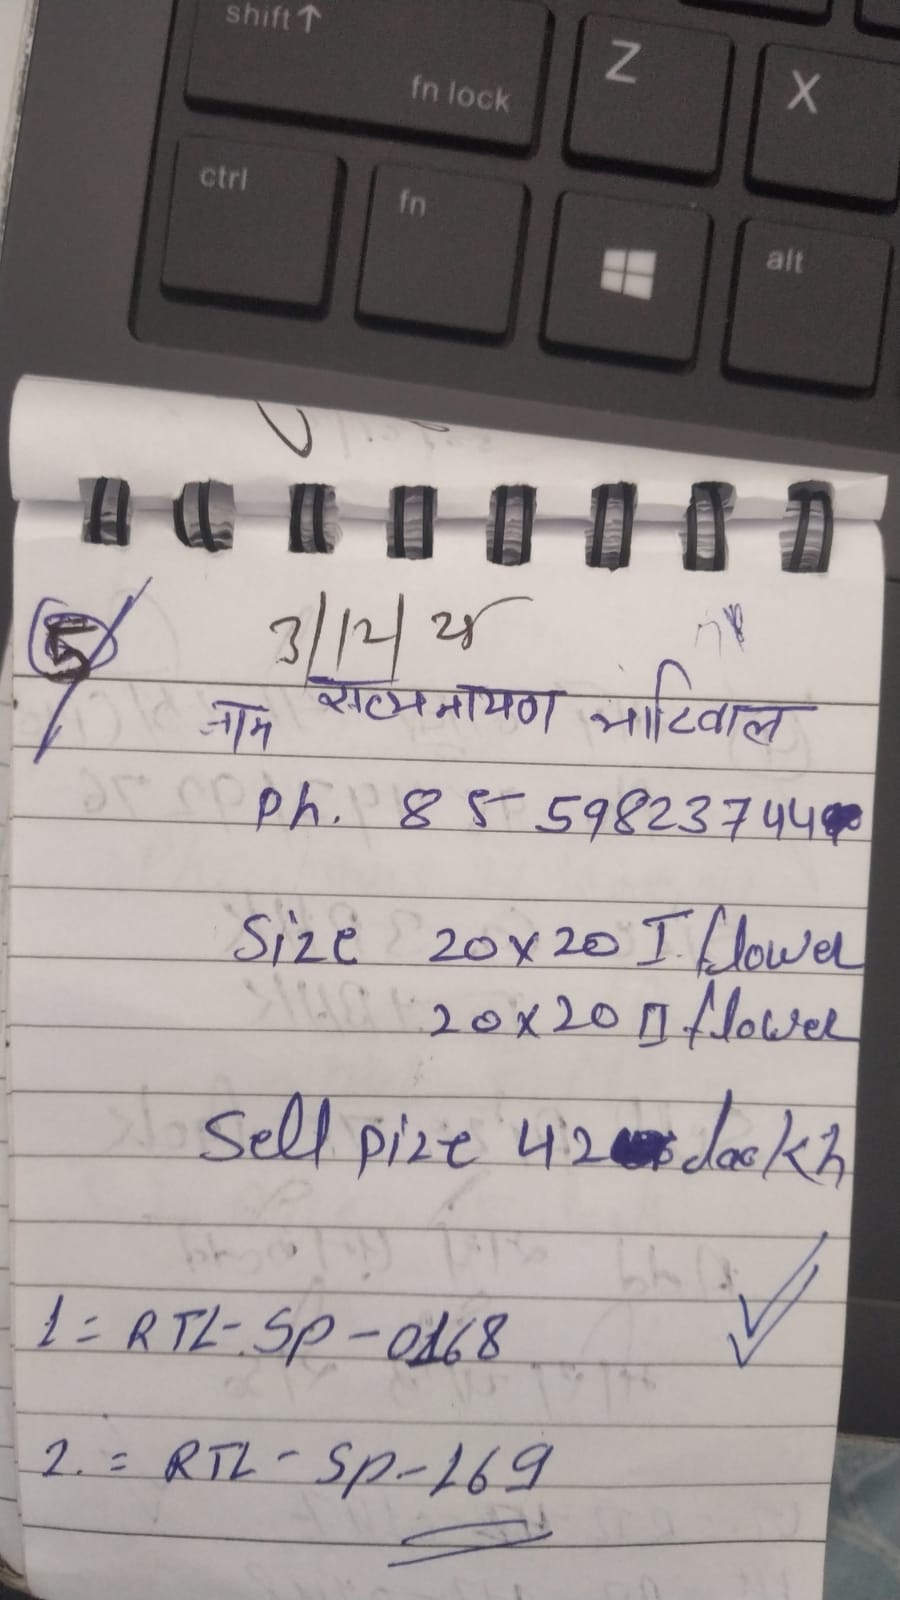 shift↑
fn lock
Z
X
ctrl
fn
alt
5
3/12/25
नाम सत्यनारायण भाटिवाल
Ph. 85 59823744
Size 20x20 I flower
20x20 II flower
Sell pize 42 laakh
1 = RTL-SP-0168
2. = RTL-SP-169